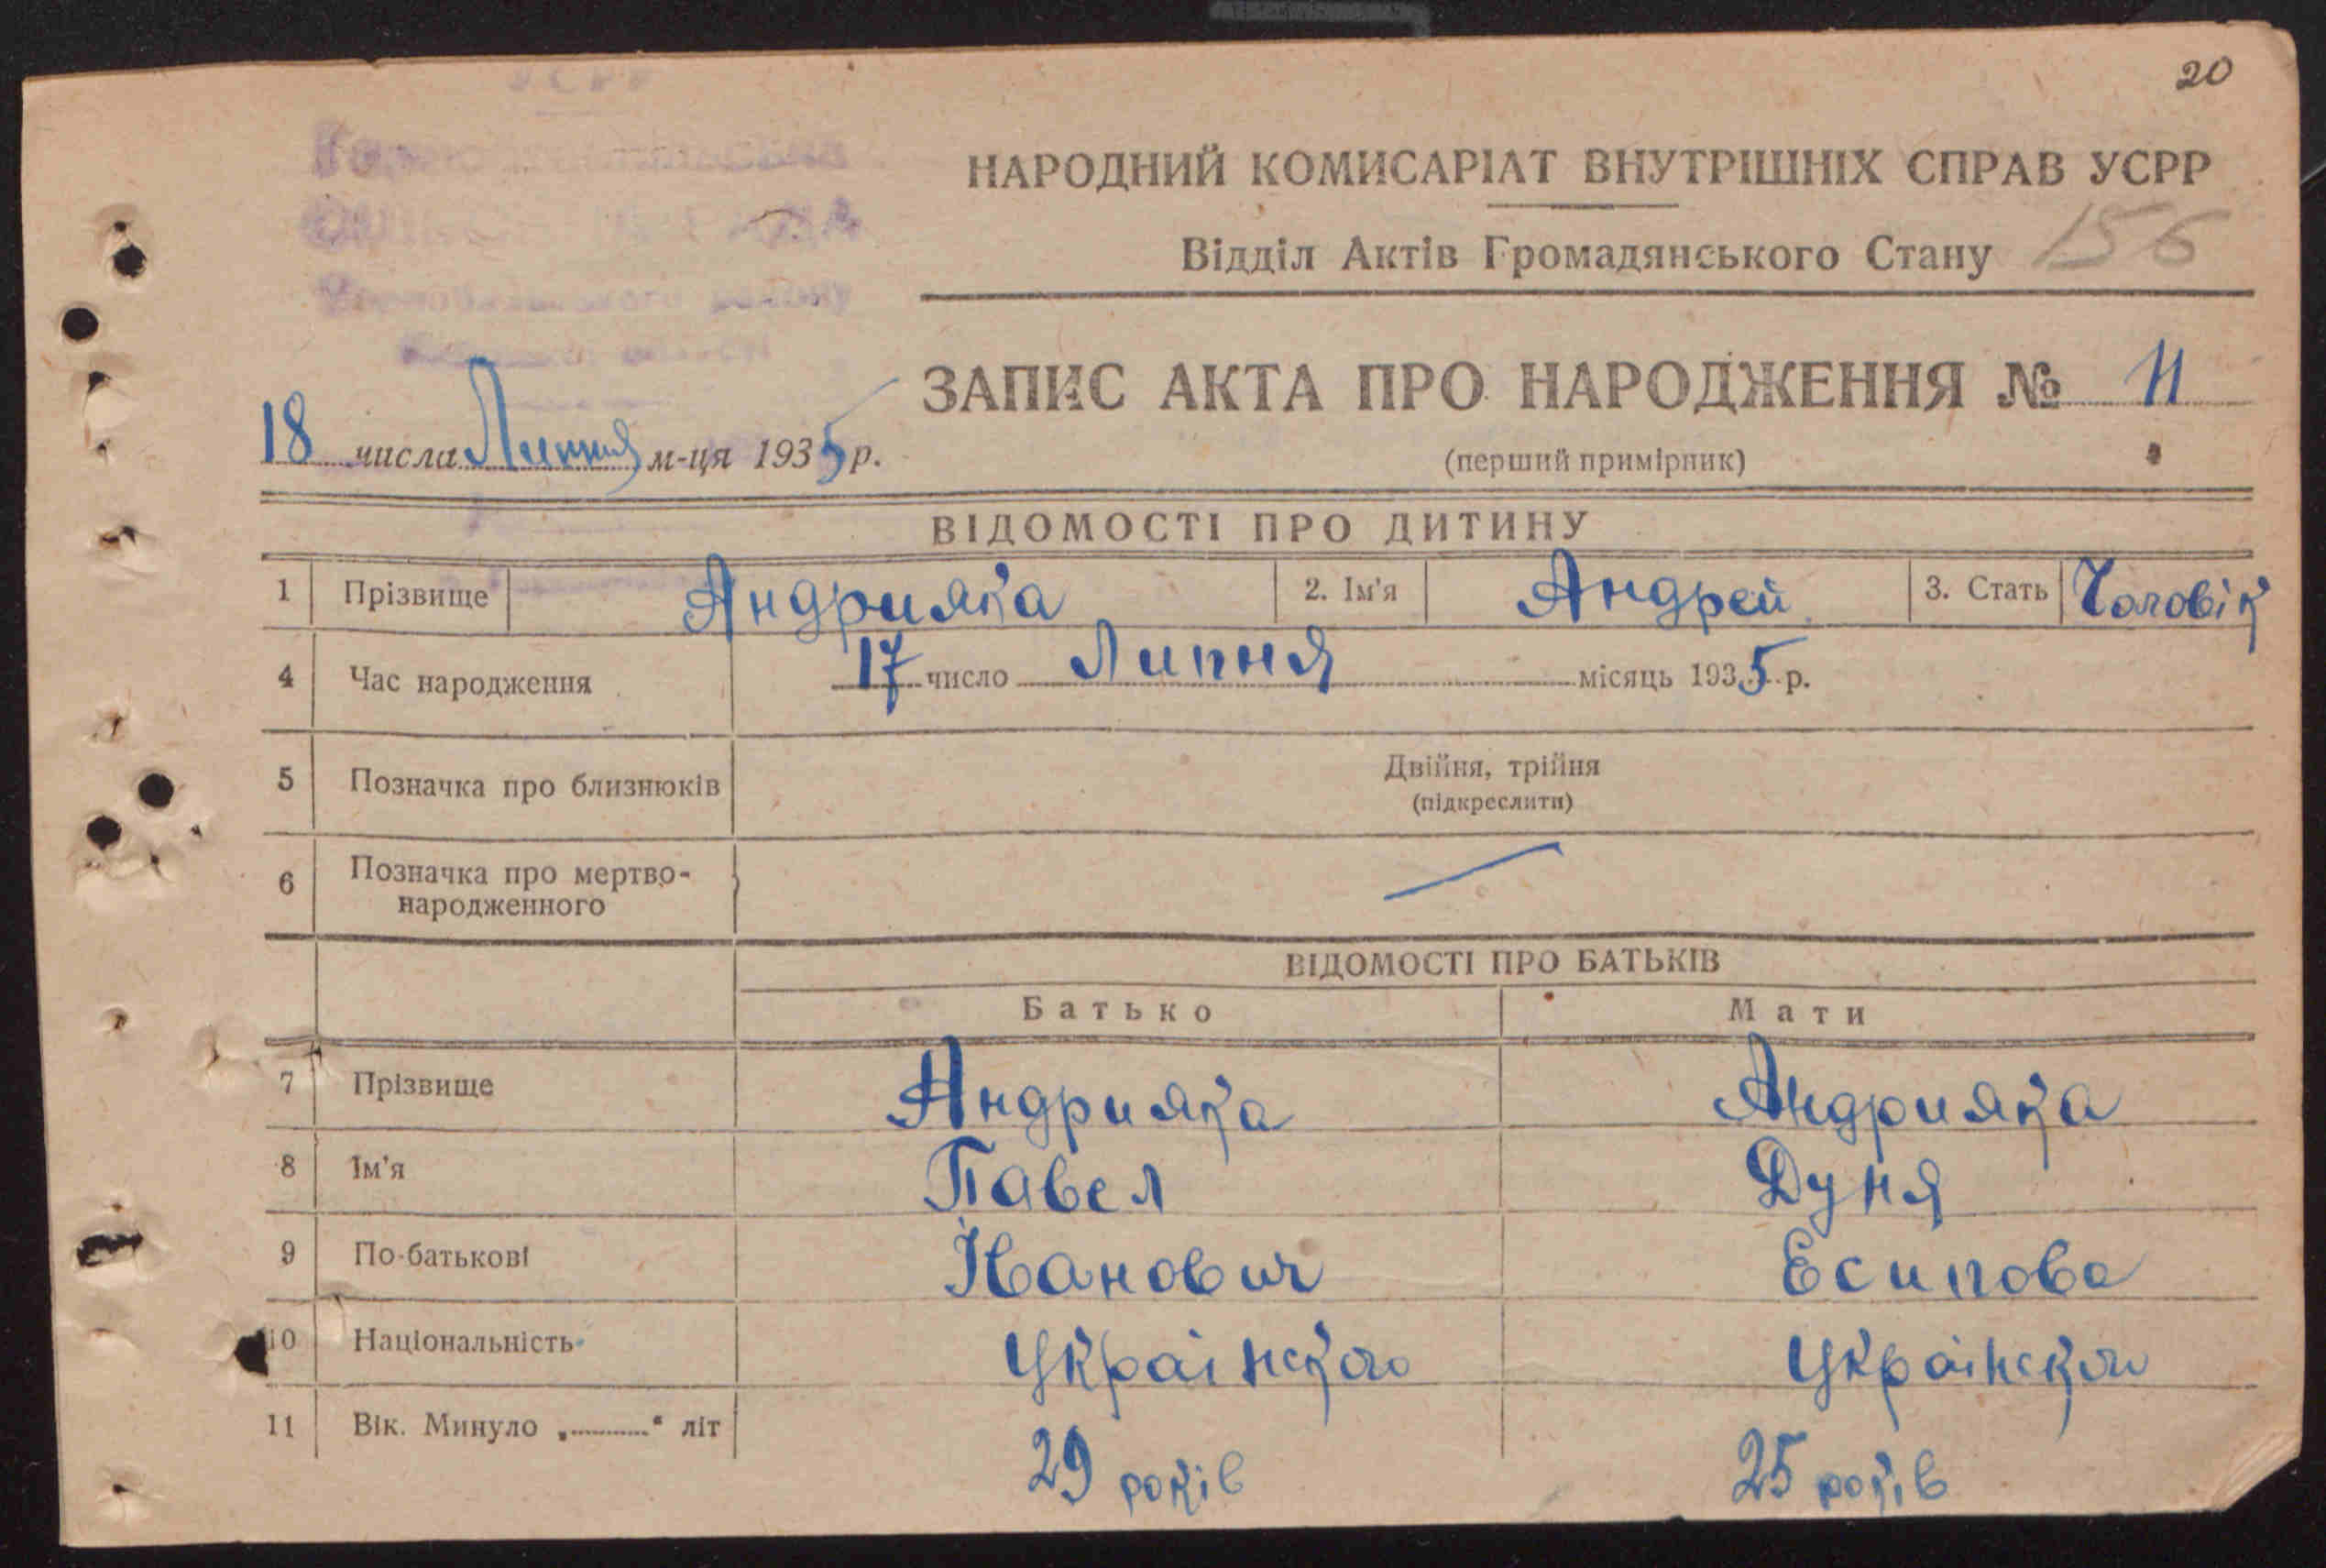 20
УСРР
НАРОДНИЙ КОМИСАРІАТ ВНУТРІШНІХ СПРАВ УСРР
Відділ Актів Громадянського Стану 156
ЗАПИС АКТА ПРО НАРОДЖЕННЯ № 11
18 числа Липня м-ця 1935 р.
(перший примірник)
ВІДОМОСТІ ПРО ДИТИНУ
1 Прізвище Андрияка 2. Ім'я Андрей 3. Стать Чоловік
4 Час народження 17 число Липня місяць 1935 р.
5 Позначка про близнюків Двійня, трійня
(підкреслити)
6 Позначка про мертво-
народженного
ВІДОМОСТІ ПРО БАТЬКІВ
Батько Мати
7 Прізвище Андрияка Андрияка
8 Ім'я Павел Дуня
9 По-батькові Іванович Есипова
10 Національність
11 Вік. Минуло „..........“ літ 29 років 25 років